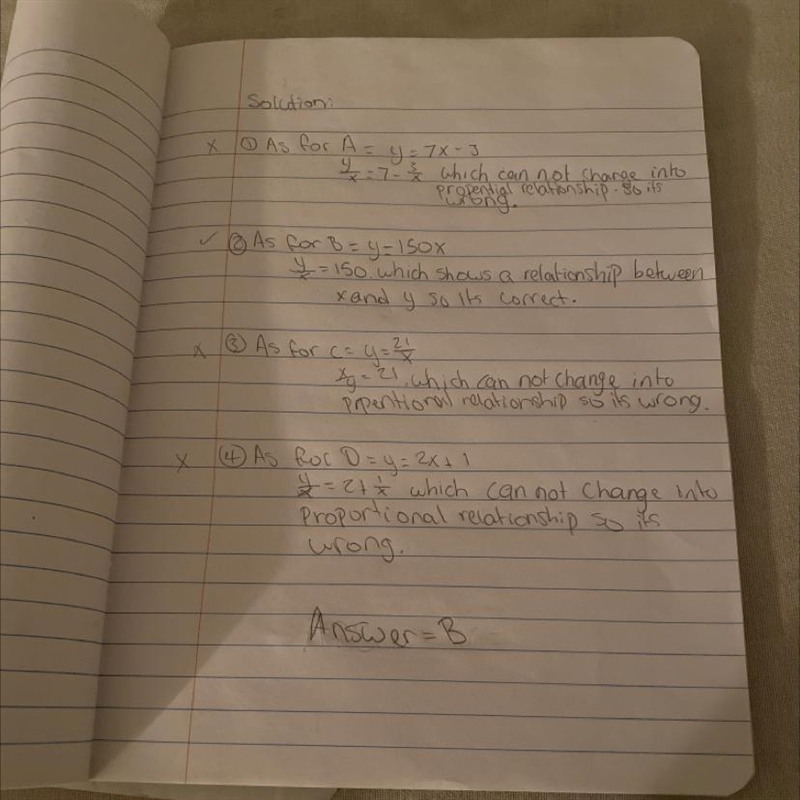 Solution:
x ① As for A = y = 7x - 3
y/x = 7 - 3/x which can not change into
propential relationship. so its
wrong.
✓ ② As for B = y = 150x
y/x = 150. which shows a relationship between
x and y so its correct.
x ③ As for c = y = 21/x
xy = 21. which can not change into
prpentional relationship so its wrong.
x ④ As for D = y = 2x + 1
y/x = 2 + 1/x which can not change into
proportional relationship so its
wrong.
Answer = B